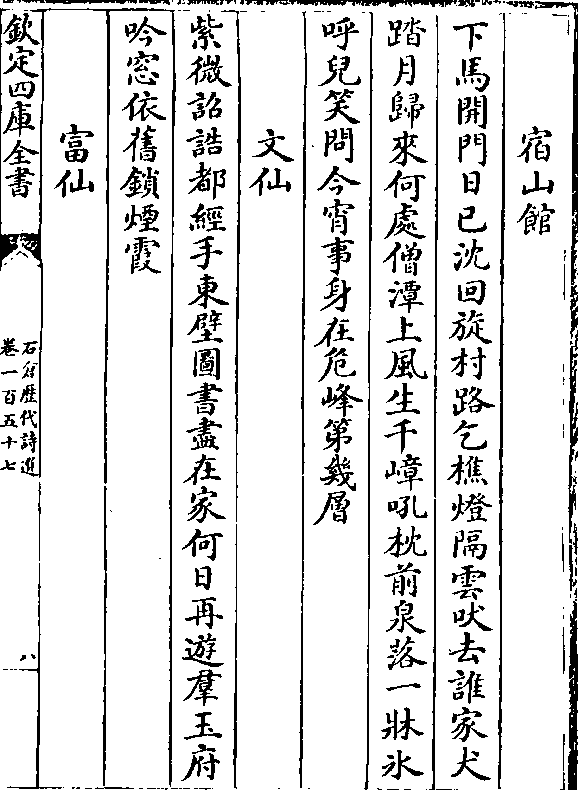 宿山館
下馬開門日已沈回旋村路乞樵燈隔雲吠去誰家犬
踏月歸來何處僧潭上風生千嶂吼枕前泉落一牀氷
呼兒笑問今宵事身在危峰第幾層
文仙
紫微詔誥都經手東壁圖書盡在家何日再遊羣玉府
吟窓依舊鎖煙霞
富仙
欽定四庫全書
石倉歷代詩選
卷一百五十七
八